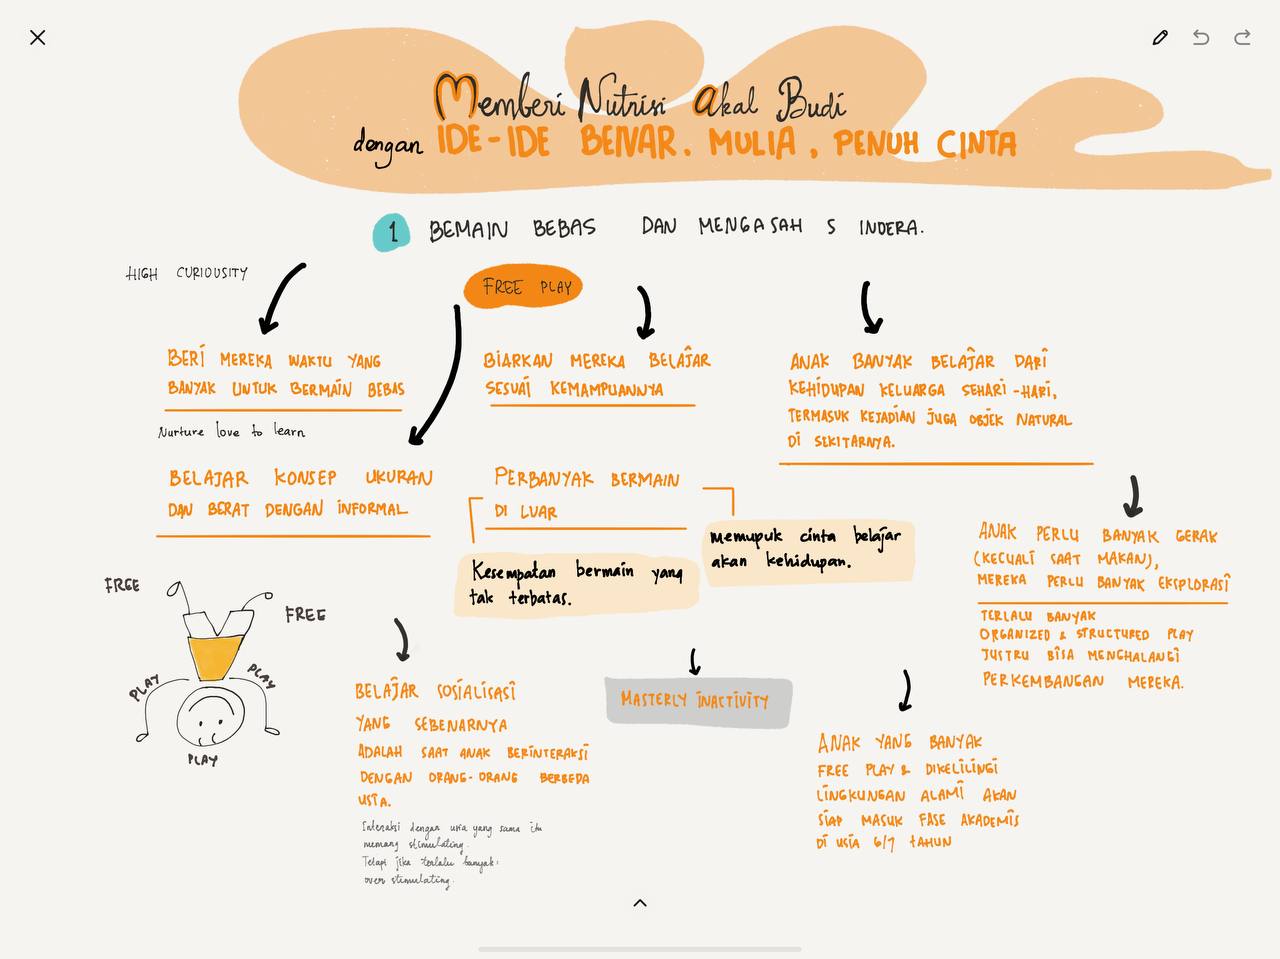 Memberi Nutrisi Akal Budi
dengan IDE-IDE BENAR. MULIA, PENUH CINTA
1 BEMAIN BEBAS DAN MENGASAH 5 INDERA.
HIGH CURIOUSITY
FREE PLAY
BERI MEREKA WAKTU YANG
BANYAK UNTUK BERMAIN BEBAS
Nurture love to learn
BIARKAN MEREKA BELAJAR
SESUAI KEMAMPUANNYA
ANAK BANYAK BELAJAR DARI
KEHIDUPAN KELUARGA SEHARI-HARI,
TERMASUK KEJADIAN JUGA OBJEK NATURAL
DI SEKITARNYA.
BELAJAR KONSEP UKURAN
DAN BERAT DENGAN INFORMAL
PERBANYAK BERMAIN
DI LUAR
Kesempatan bermain yang
tak terbatas.
Memupuk cinta belajar
akan kehidupan.
ANAK PERLU BANYAK GERAK
(KECUALI SAAT MAKAN),
MEREKA PERLU BANYAK EKSPLORASI
TERLALU BANYAK
ORGANIZED & STRUCTURED PLAY
JUSTRU BISA MENGHALANGI
PERKEMBANGAN MEREKA.
FREE
FREE
PLAY
PLAY
PLAY
BELAJAR SOSIALISASI
YANG SEBENARNYA
ADALAH SAAT ANAK BERINTERAKSI
DENGAN ORANG-ORANG BERBEDA
USIA.
Interaksi dengan usia yang sama itu
memang stimulating.
Tetapi jika terlalu banyak:
over stimulating.
MASTERLY INACTIVITY
ANAK YANG BANYAK
FREE PLAY & DIKELILINGI
LINGKUNGAN ALAMI AKAN
SIAP MASUK FASE AKADEMIS
DI USIA 6/7 TAHUN